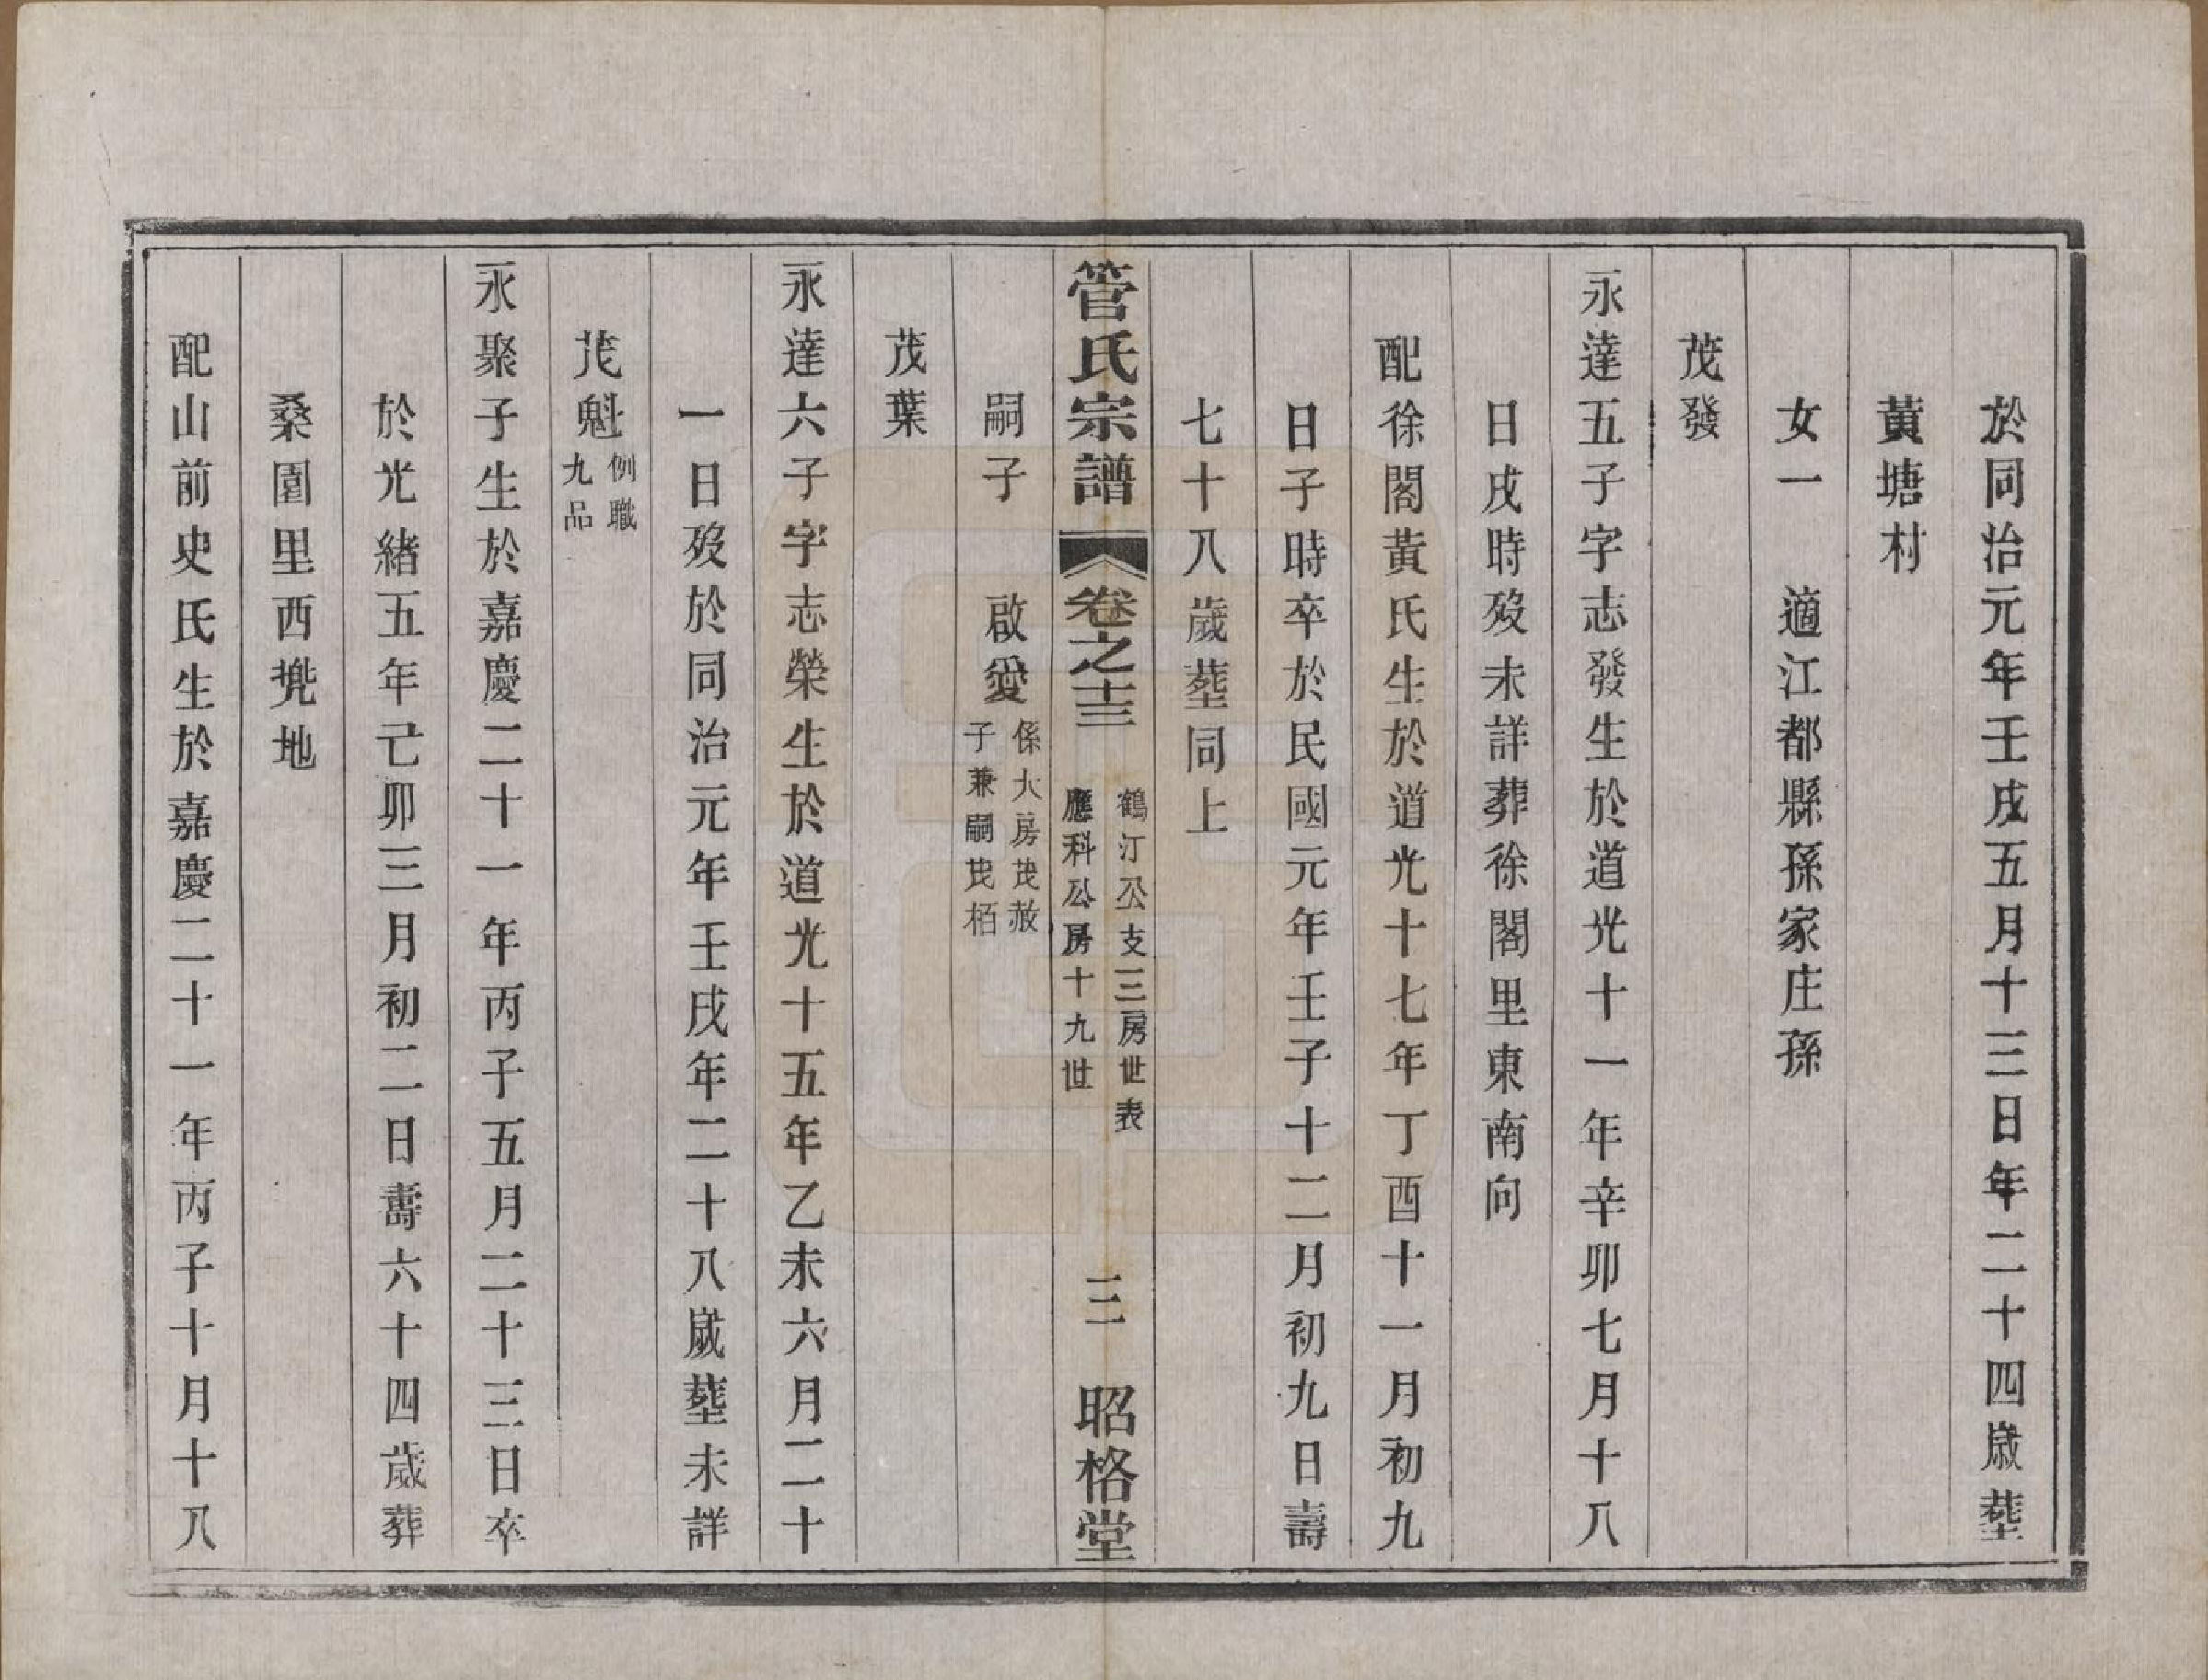 於同治元年壬戌五月十三日年二十四歲塟
黃塘村
女一　適江都縣孫家庄孫
茂發
永達五子字志發生於道光十一年辛卯七月十八
日戌時歿未詳葬徐閣里東南向
配徐閣黃氏生於道光十七年丁酉十一月初九
日子時卒於民國元年壬子十二月初九日壽
七十八歲塟同上
管氏宗譜　卷之十三　鶴汀公支三房世表　應科公房十九世　三　昭格堂
嗣子　啟愛　係大房茂赦子兼嗣茂栢
茂葉
永達六子字志榮生於道光十五年乙未六月二十
一日歿於同治元年壬戌年二十八歲塟未詳
茂魁　例職九品
永聚子生於嘉慶二十一年丙子五月二十三日卒
於光緒五年己卯三月初二日壽六十四歲葬
桑園里西兠地
配山前史氏生於嘉慶二十一年丙子十月十八